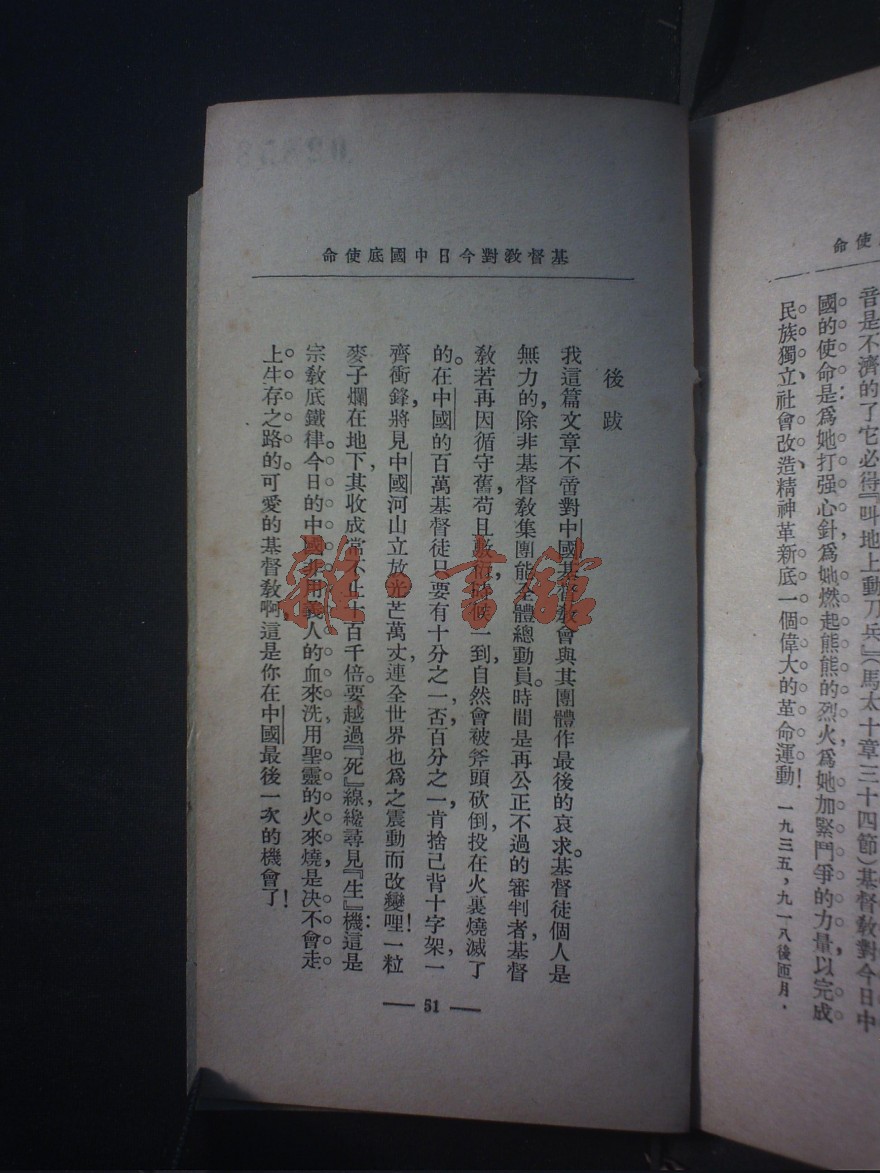 使命
音是不濟的了它必得『叫地上動刀兵』(馬太十章三十四節)基督教對今日中
國的使命是:爲她打强心針爲她燃起熊熊的烈火,爲她加緊鬥爭的力量,以完成
民族獨立、社會改造、精神革新底一個偉大的革命運動!一九三五,九一八後匝月.
基督教對今日中國底使命
後跋
我這篇文章不啻對中國基督教會與其團體作最後的哀求。基督徒個人是
無力的,除非基督教集團能全體總動員。時間是再公正不過的審判者,基督
教若再因循守舊,苟且敷衍,時候一到,自然會被斧頭砍倒,投在火裏燒滅了
的。在中國的百萬基督徒只要有十分之一,否,百分之一,肯捨己背十字架一
齊衝鋒,將見中國河山立放光芒萬丈,連全世界也爲之震動而改變哩!一粒
麥子爛在地下,其收成常不止十百千倍。要越過『死』線,纔尋見『生』機:這是
宗教底鐵律。今日的中國非用義人的血來洗,用聖靈的火來燒,是决不會走
上生存之路的。可愛的基督教啊,這是你在中國最後一次的機會了!
— 51 —
雜·書館